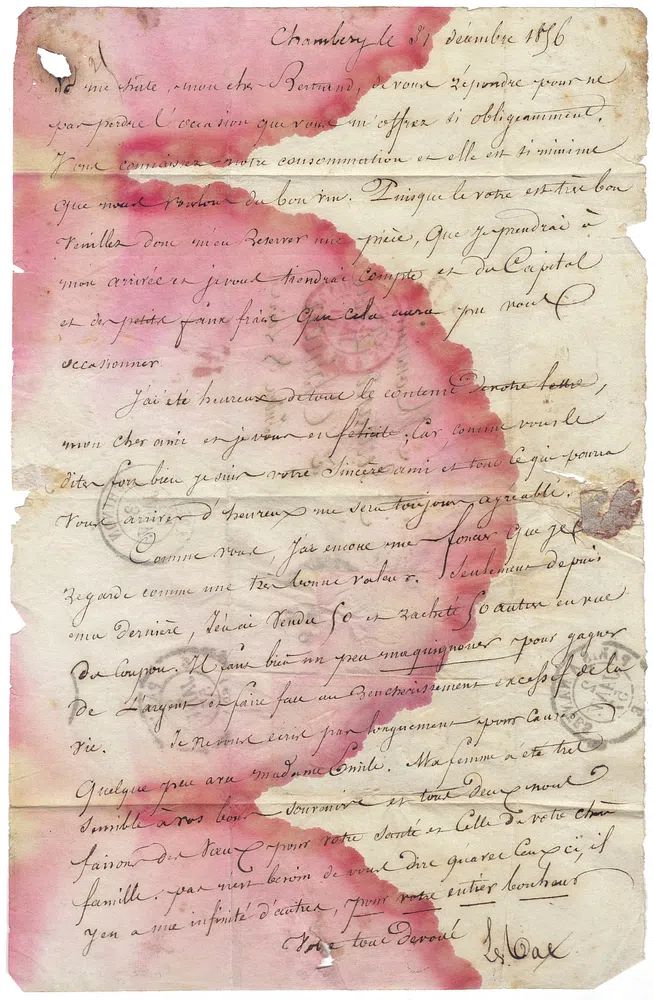 Chambery le 31 décembre 1856
Je me hâte, mon cher Bertrand, de vous répondre pour ne
pas perdre l'occasion que vous m'offrez si obligeamment.
Vous connaissez notre consommation et elle est si minime
que nous voulons du bon vin. Puisque le votre est très bon
Veuillez donc m'en reserver une pièce, que je prendrai à
mon arrivée et je vous tiendrai compte et du Capital
et des petits faux frais que cela aura pu vous
occasionner.
J'ai été heureux de tout le contenu de votre lettre,
mon cher ami et je vous en félicite, Car comme vous le
dites fort bien je suis votre sincère ami et tout ce qui pourra
vous arriver d'heureux me sera toujours agréable.
Comme vous, j'ai encore mes foncier que je
regarde comme une très bonne valeur. Seulement depuis
ma dernière, j'en ai vendu 50 et racheté 50 autres en vue
du Coupon. Il faut bien un peu maquignoner pour gagner
de L'argent et faire face au Rencherissement excessif de la
vie. Je ne vous écris pas longuement pour causer
quelque peu avec madame Emile. Ma femme a été très
sensible à vos bons souvenirs et tous deux nous
faisons des Vœux pour votre santé et Celle de votre chère
famille. pas n'est besoin de vous dire qu'avec Ceux ci, il
y en a une infinité d'autres, pour votre entier bonheur
Votre tout devoué